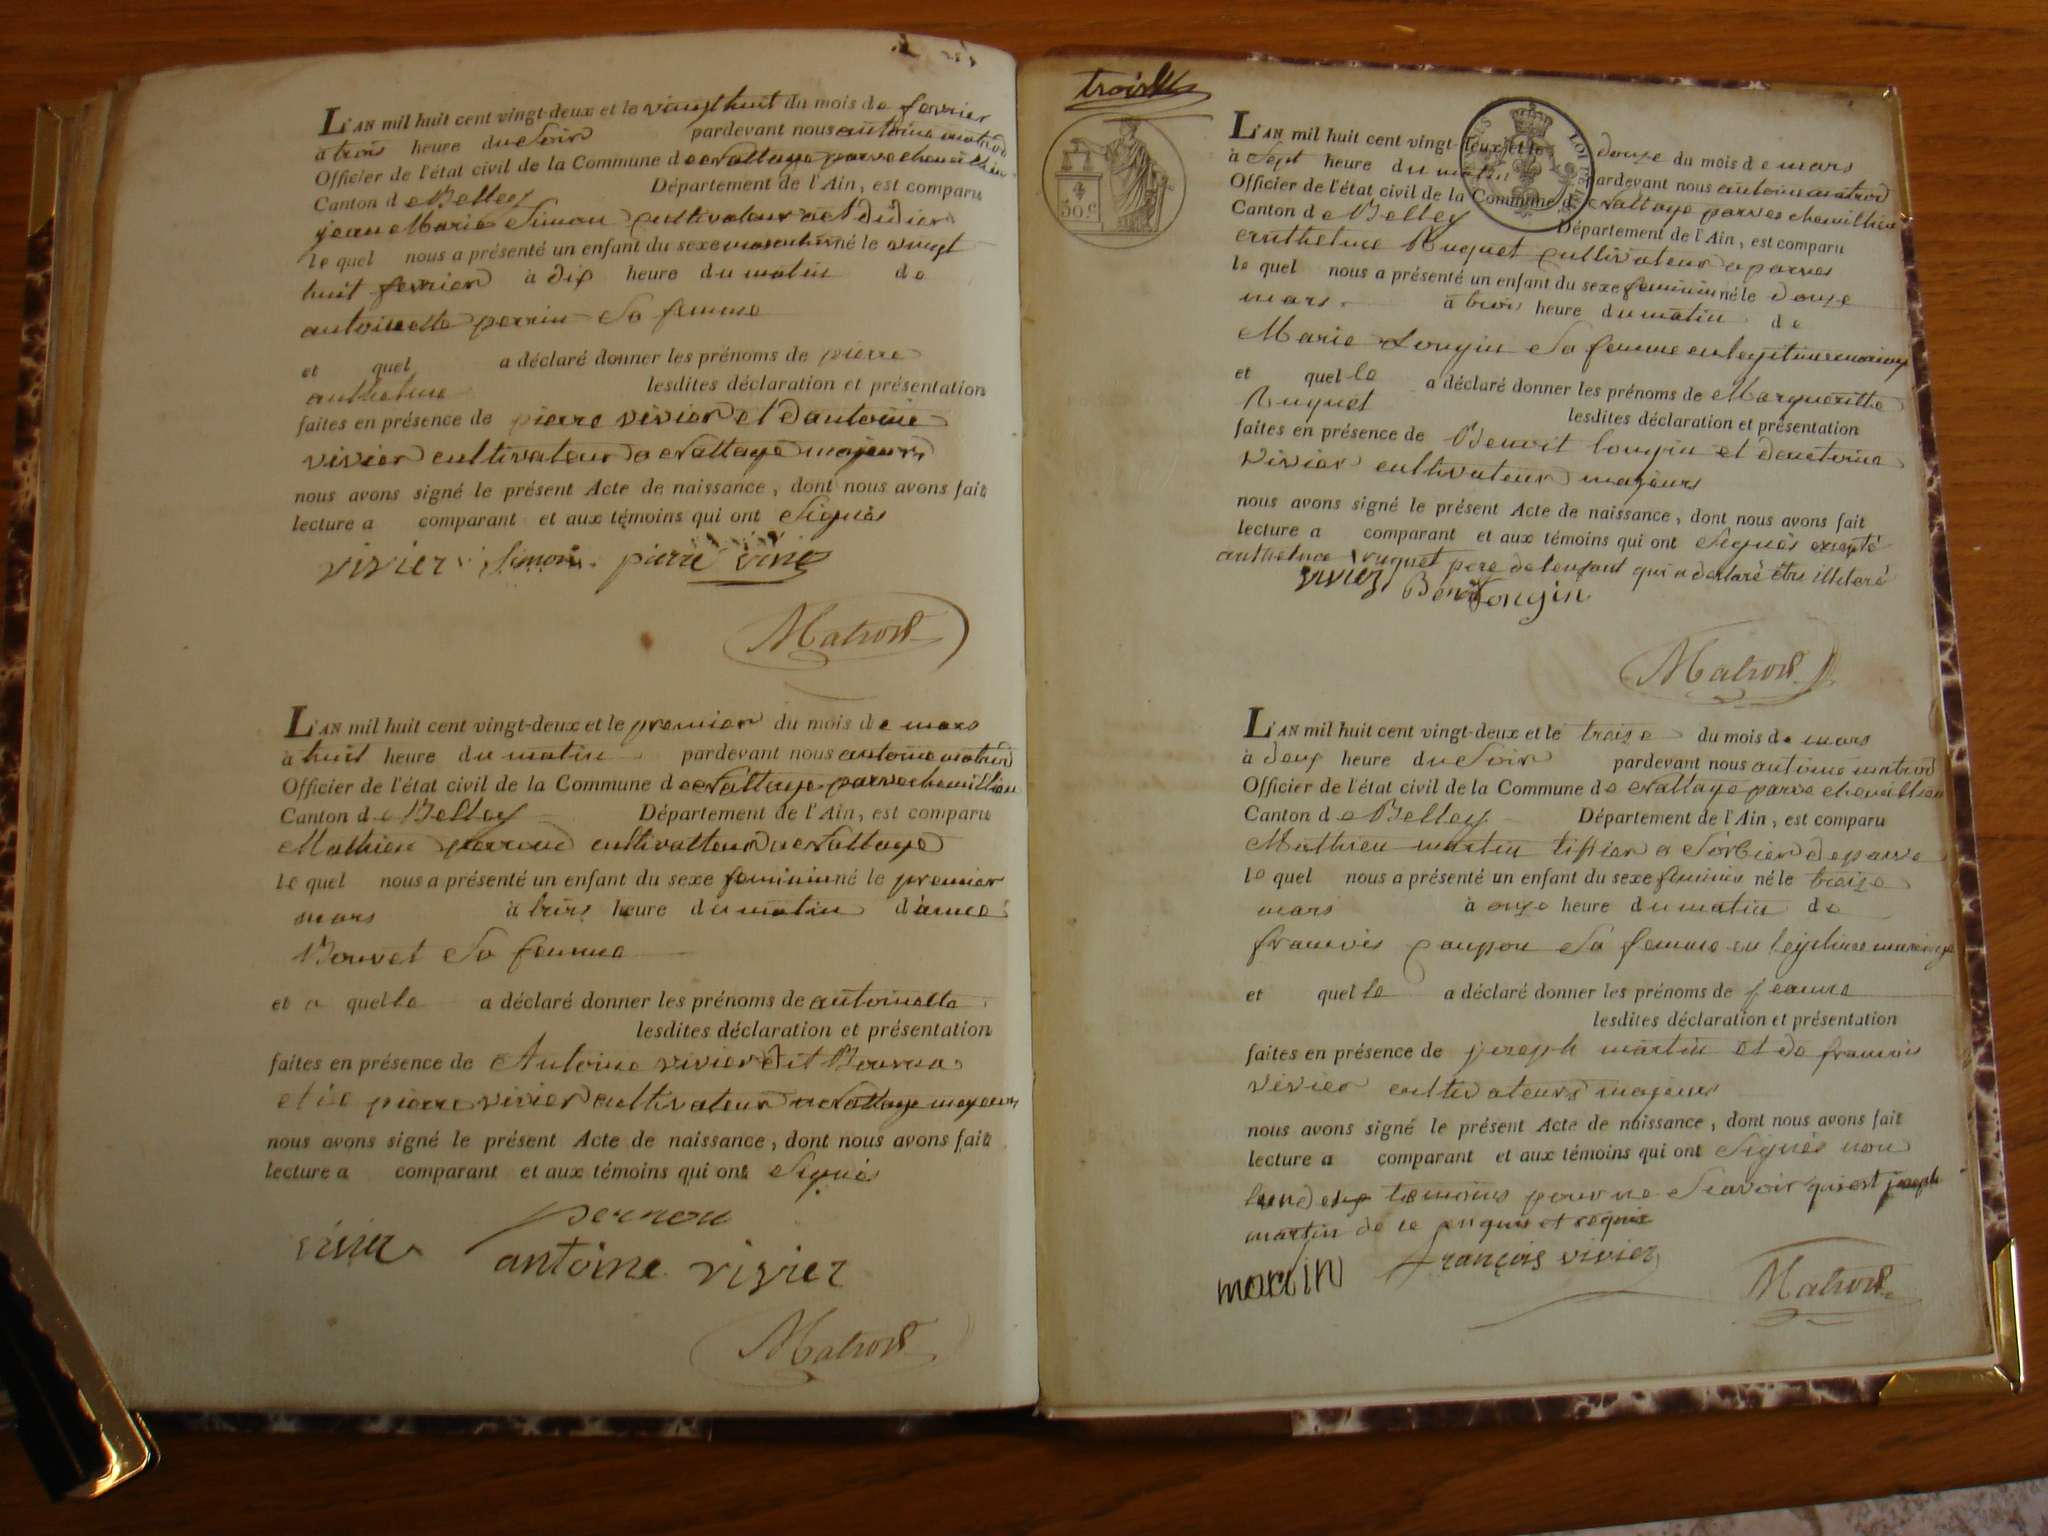 L'AN mil huit cent vingt-deux et le vingt huit du mois de fevrier
à trois heure du Soir pardevant nous antoine matrod
Officier de l'état civil de la Commune de nattage parve
Canton de Belley Département de l'Ain, est comparu
jean Marie Simon cultivateur a
le quel nous a présenté un enfant du sexe masculin né le vingt
huit fevrier à dix heure du matin de
antoinette perrin Sa femme
et quel a déclaré donner les prénoms de pierre
anthelme lesdites déclaration et présentation
faites en présence de pierre vivier et d antoine
vivier cultivateur a nattage majeurs
nous avons signé le présent Acte de naissance, dont nous avons fait
lecture a comparant et aux témoins qui ont Signés
vivier Simon pierre vivier
Matrod
L'AN mil huit cent vingt-deux et le premier du mois de mars
à huit heure du matin pardevant nous antoine matrod
Officier de l'état civil de la Commune de nattage parve
Canton de Belley Département de l'Ain, est comparu
Mathieu cultivatteur a nattage
le quel nous a présenté un enfant du sexe feminin né le premier
mars à trois heure du matin d'
Bouvet Sa femme
et a quelle a déclaré donner les prénoms de antoinette
lesdites déclaration et présentation
faites en présence de Antoine vivier dit
et de pierre vivier cultivateur a nattage majeurs
nous avons signé le présent Acte de naissance, dont nous avons fait
lecture a comparant et aux témoins qui ont Signés
vivier
antoine vivier
Matrod
trois
50 C
L'AN mil huit cent vingt-deux et le douze du mois de mars
à Sept heure du matin pardevant nous antoine matrod
Officier de l'état civil de la Commune de nattage parves
Canton de Belley Département de l'Ain, est comparu
anthelme Ruquet cultivateur a parves
le quel nous a présenté un enfant du sexe feminin né le douze
mars à trois heure du matin de
Marie Longin Sa femme en legitime mariage
et quel le a déclaré donner les prénoms de Margueritte
Ruquet lesdites déclaration et présentation
faites en présence de Benoit longin et d antoine
vivier cultivateur majeurs
nous avons signé le présent Acte de naissance, dont nous avons fait
lecture a comparant et aux témoins qui ont Signés excepté
anthelme ruquet pere de lenfant qui a declaré être illiteré
vivier Benoit Longin
Matrod
L'AN mil huit cent vingt-deux et le treize du mois de mars
à deux heure du Soir pardevant nous antoine matrod
Officier de l'état civil de la Commune de nattage parve
Canton de Belley Département de l'Ain, est comparu
Mathieu martin tissier a Sorbier de parve
le quel nous a présenté un enfant du sexe feminin né le treize
mars à onze heure du matin de
Sa femme en legitime mariage
et quel le a déclaré donner les prénoms de jeanne
lesdites déclaration et présentation
faites en présence de joseph martin et de francois
vivier cultivateurs majeurs
nous avons signé le présent Acte de naissance, dont nous avons fait
lecture a comparant et aux témoins qui ont Signés non
temoins pour ne Scavoir qui est joseph
martin de ce enquis et requis
martin françois vivier
Matrod